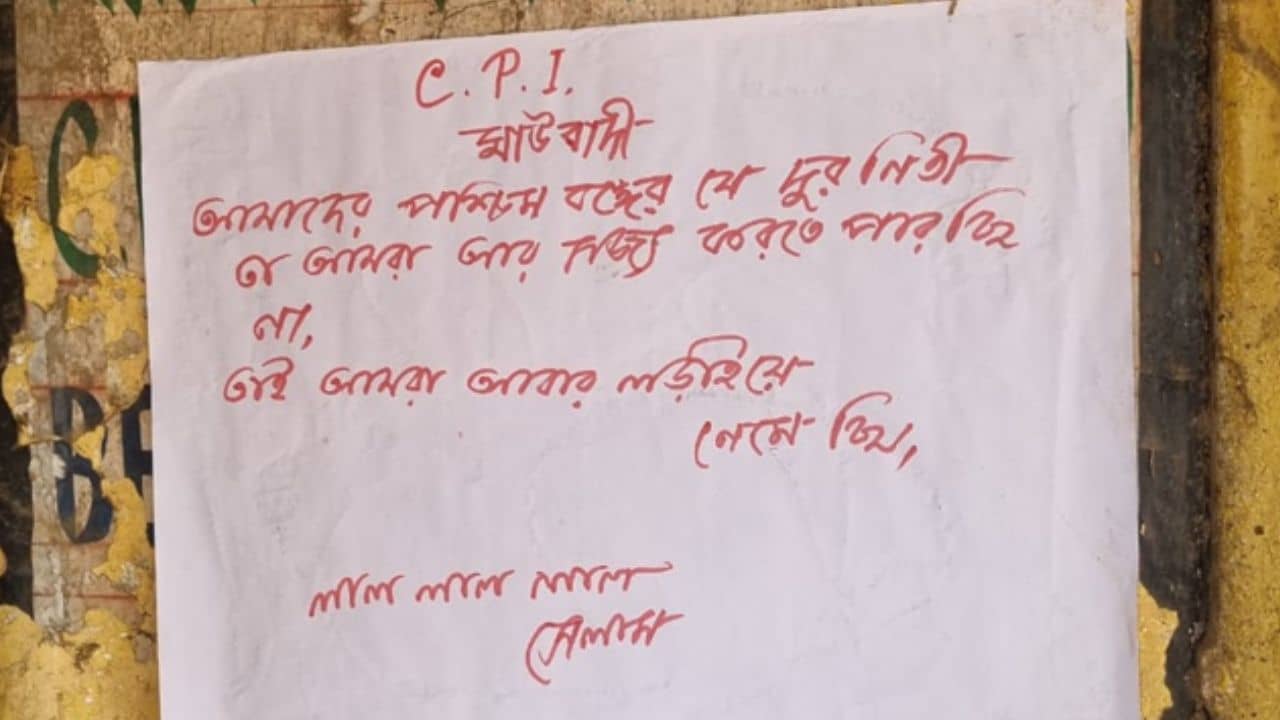 C. P. I.
মাউবাদী
আমাদের পশ্চিম বঙ্গের যে দুর নিতী
তা আমরা আর সজ্য করতে পারছি
না,
তাই আমরা আবার লড়াইয়ে
নেমেছি,
লাল লাল লাল
সেলাম